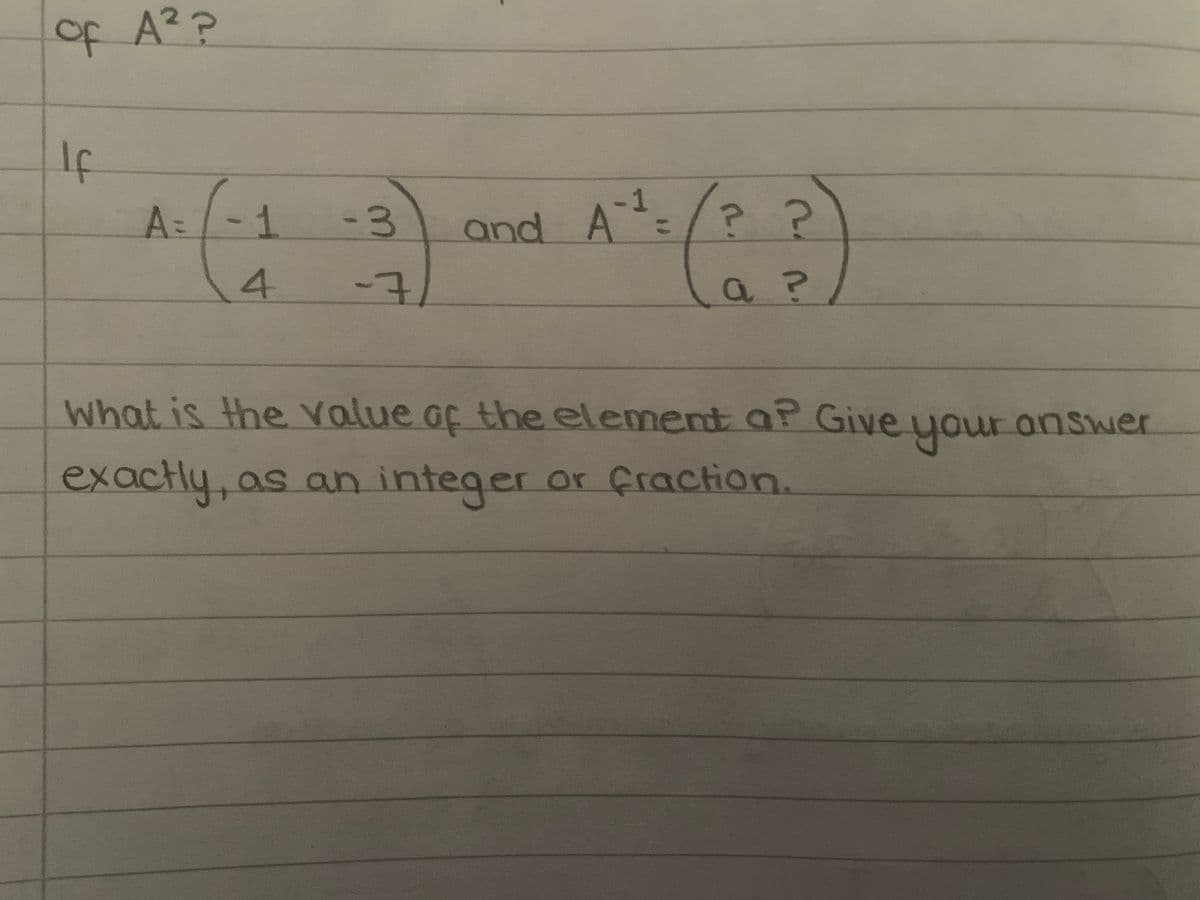 of A²?
If
A= (-1 -3) and A⁻¹= (? ?)
(4 -7) (a ?)
What is the value of the element a? Give your answer
exactly, as an integer or fraction.